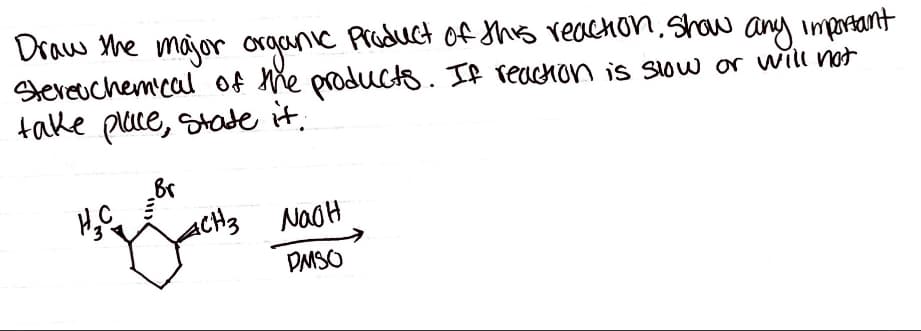 Draw the major organic Product of this reaction. Show any important
Stereochemical of the products. If reaction is slow or will not
take place, State it.
Br
H3C
CH3
NaOH
DMSO